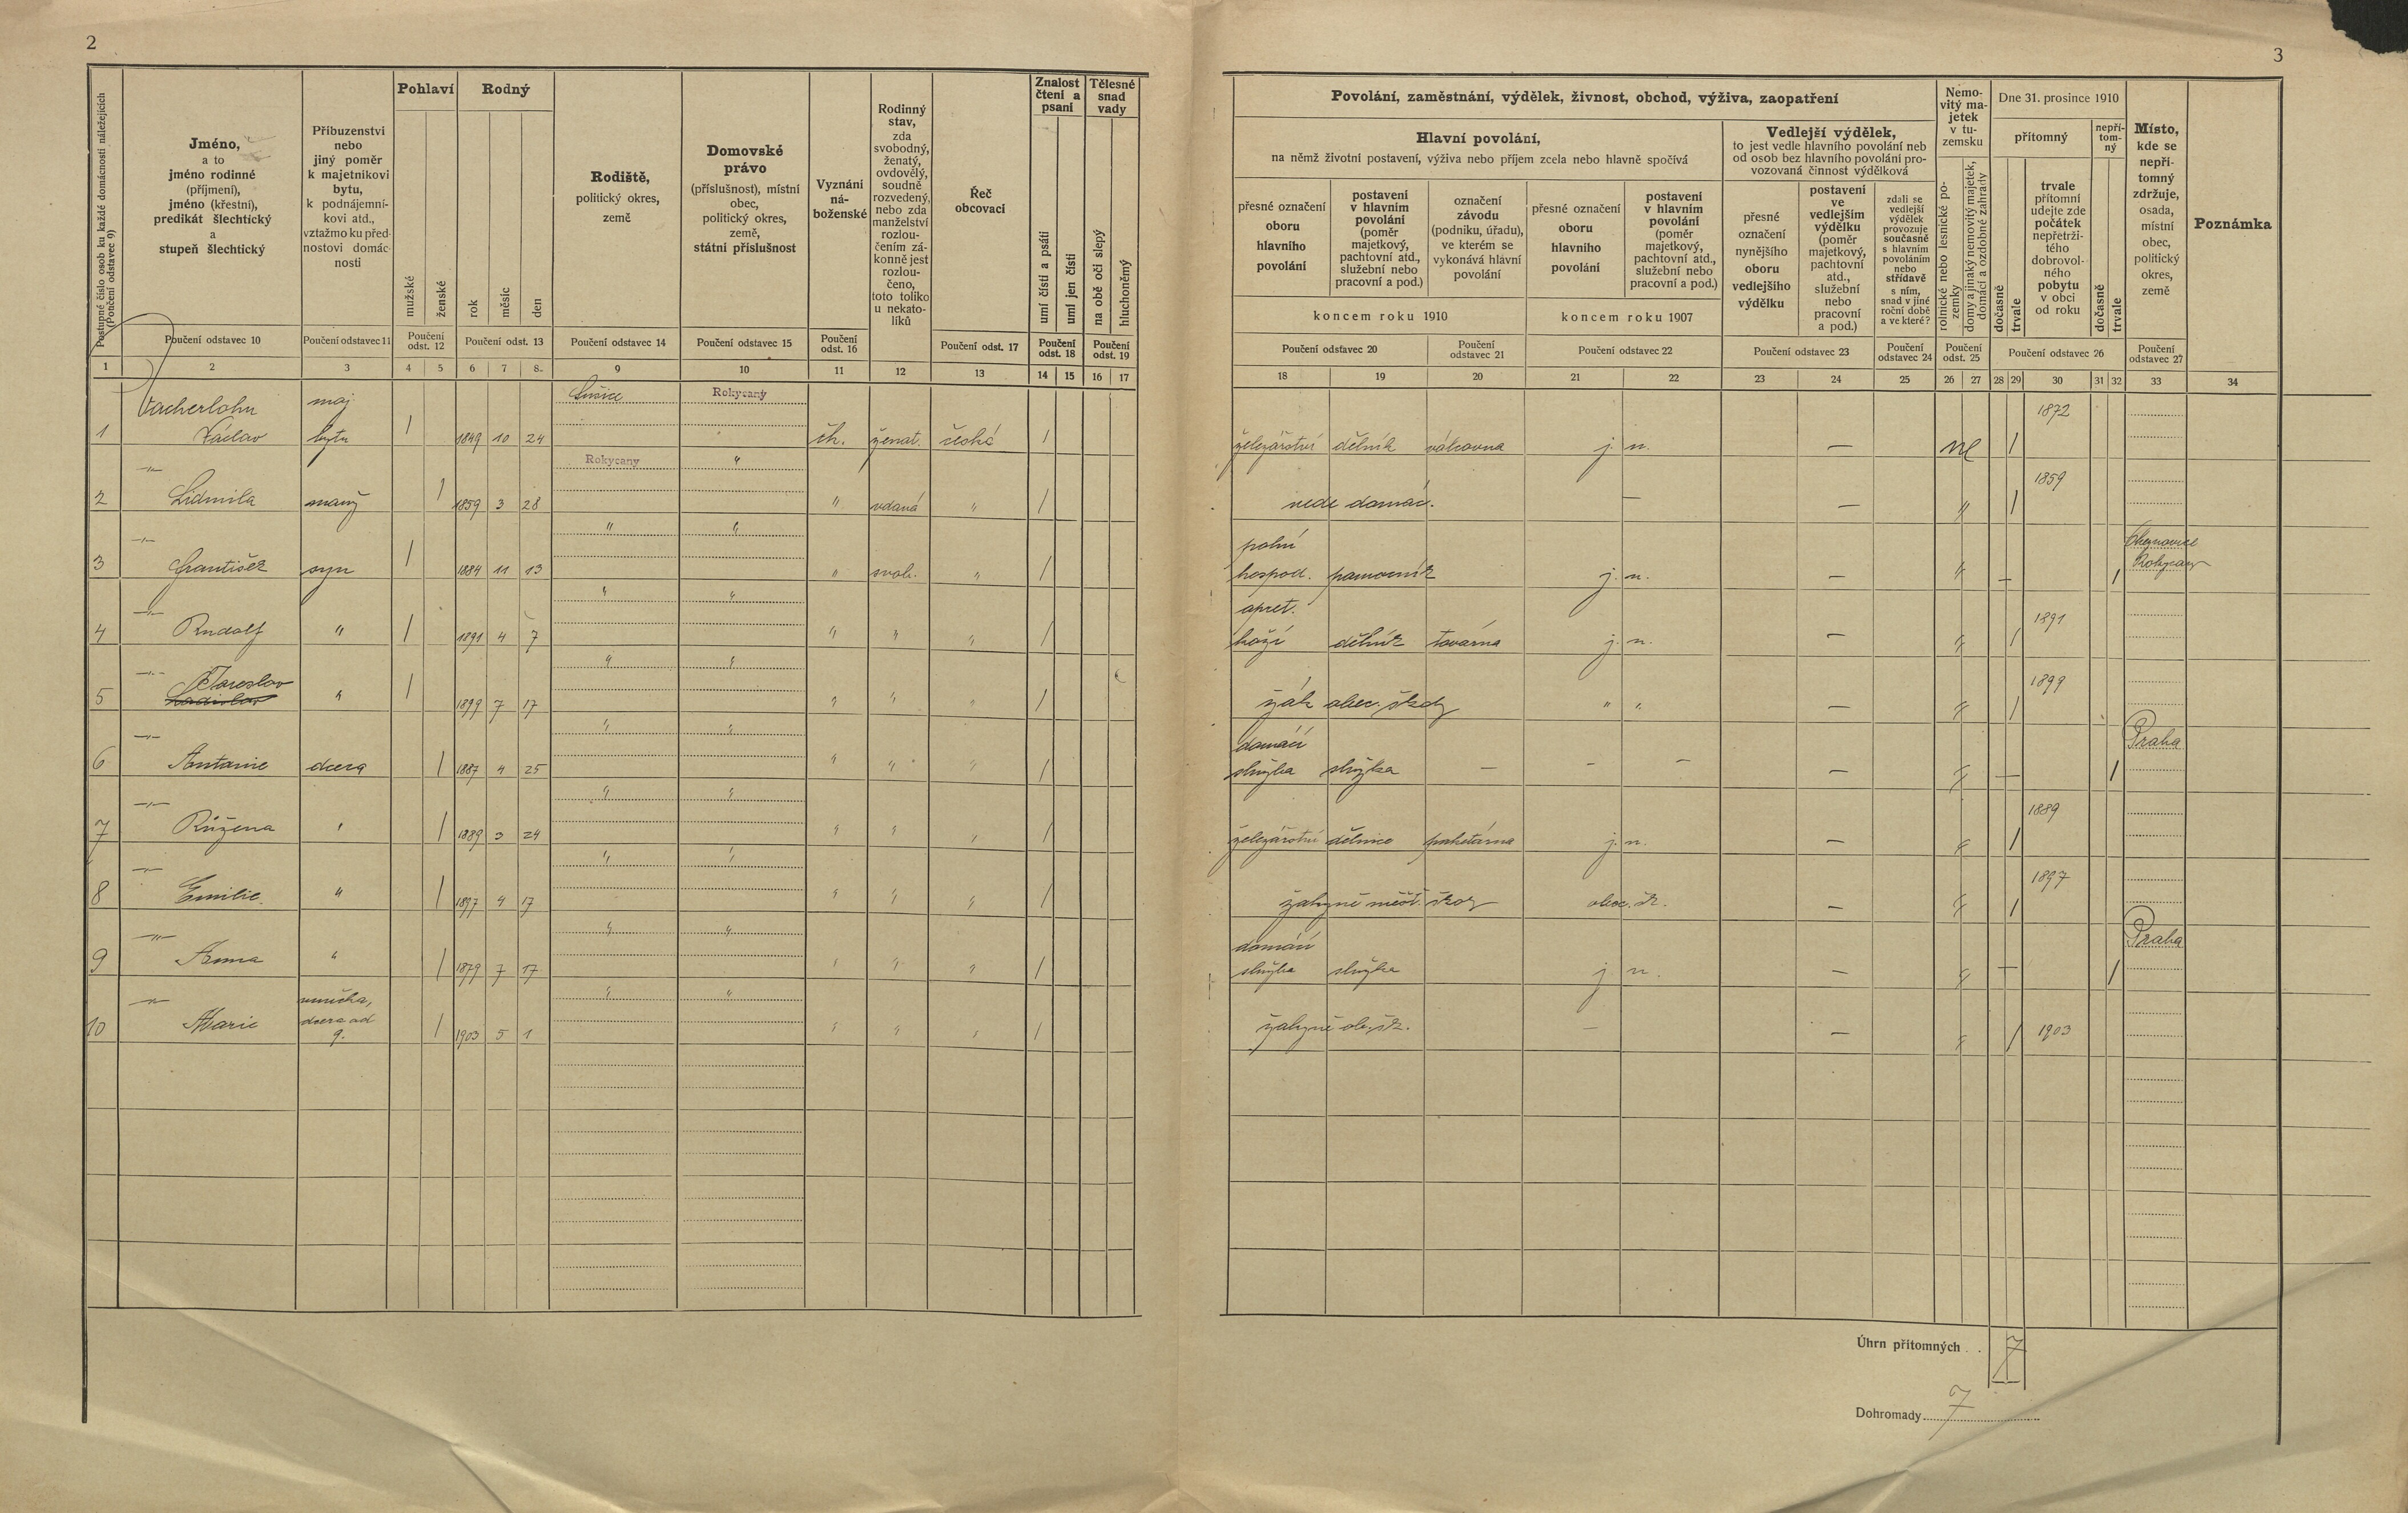 2
3
Postupné číslo osob ku každé domácnosti náležejících
(Poučení odstavec 9)
Jméno,
a to
jméno rodinné
(příjmení),
jméno (křestní),
predikát šlechtický
a
stupeň šlechtický
Příbuzenství
nebo
jiný poměr
k majetníkovi
bytu,
k podnájemní-
kovi atd.,
vztažmo ku před-
nostovi domác-
nosti
Pohlaví
mužské
ženské
Rodný
rok
měsíc
den
Rodiště,
politický okres,
země
Domovské
právo
(příslušnost), místní
obec,
politický okres,
země,
státní příslušnost
Vyznání
ná-
boženské
Rodinný
stav,
zda
svobodný,
ženatý,
ovdovělý,
soudně
rozvedený,
nebo zda
manželství
rozlou-
čením zá-
konně jest
rozlou-
čeno,
toto toliko
u nekato-
líků
Řeč
obcovací
Znalost
čtení a
psaní
umí čísti a psáti
umí jen čísti
Tělesné
snad
vady
na obě oči slepý
hluchoněmý
Poučení odstavec 10
Poučení odstavec 11
Poučení
odst. 12
Poučení odst. 13
Poučení odstavec 14
Poučení odstavec 15
Poučení
odst. 16
Poučení odst. 17
Poučení
odst. 18
Poučení
odst. 19
1 2 3 4 5 6 7 8 9 10 11 12 13 14 15 16 17
Povolání, zaměstnání, výdělek, živnost, obchod, výživa, zaopatření
Hlavní povolání,
na němž životní postavení, výživa nebo příjem zcela nebo hlavně spočívá
přesné označení
oboru
hlavního
povolání
postavení
v hlavním
povolání
(poměr
majetkový,
pachtovní atd.,
služební nebo
pracovní a pod.)
označení
závodu
(podniku, úřadu),
ve kterém se
vykonává hlavní
povolání
přesné označení
oboru
hlavního
povolání
postavení
v hlavním
povolání
(poměr
majetkový,
pachtovní atd.,
služební nebo
pracovní a pod.)
koncem roku 1910
koncem roku 1907
Vedlejší výdělek,
to jest vedle hlavního povolání neb
od osob bez hlavního povolání pro-
vozovaná činnost výdělková
přesné
označení
nynějšího
oboru
vedlejšího
výdělku
postavení
ve
vedlejším
výdělku
(poměr
majetkový,
pachtovní
atd.,
služební
nebo
pracovní
a pod.)
zdali se
vedlejší
výdělek
provozuje
současně
s hlavním
povoláním
nebo
střídavě
s ním,
snad v jiné
roční době
a ve které?
Nemo-
vitý ma-
jetek
v tu-
zemsku
rolnické nebo lesnické po-
zemky
domy a jinaký nemovitý majetek,
domácí a ozdobné zahrady
Dne 31. prosince 1910
přítomný
dočasně
trvale
trvale
přítomní
udejte zde
počátek
nepřetrži-
tého
dobrovol-
ného
pobytu
v obci
od roku
nepří-
tom-
ný
dočasně
trvale
Místo,
kde se
nepří-
tomný
zdržuje,
osada,
místní
obec,
politický
okres,
země
Poznámka
Poučení odstavec 20
Poučení
odstavec 21
Poučení odstavec 22
Poučení odstavec 23
Poučení
odstavec 24
Poučení
odst. 25
Poučení odstavec 26
Poučení
odstavec 27
18 19 20 21 22 23 24 25 26 27 28 29 30 31 32 33 34
Vacherlohn maj Sušice Rokycaný 1872
1 Václav bytu 1 1849 10 24 čk. ženat. česká 1 železářství dělník válcovna j. n. — ne 1
Rokycany " 1859
2 Lidmila manž 1 1859 3 28 " vdaná " 1 vede domác. — — " 1
" " polní Rokycany
3 František syn 1 1884 11 13 " svob. " 1 hospod. pomocník j. n. — " — 1
" " apret. 1891
4 Rudolf " 1 1891 4 7 " " " 1 koží dělník továrna j. n. — " 1
" " 1899
5 Jaroslav " 1 1899 7 17 " " " 1 žák obec. školy " " — " 1
" " domácí Praha
6 Antonie dcera 1 1887 4 25 " " " 1 služba služka — — — — " — 1
" " 1889
7 Růžena " 1 1889 3 24 " " " 1 železářství dělnice paketárna j. n. — " 1
" " 1897
8 Emilie " 1 1897 4 17 " " " 1 žákyně měšť. školy obec. šk. — " 1
" " domácí Praha
9 Anna " 1 1879 7 17 " " " 1 služba služka j n. — " — 1
vnučka, " "
10 Marie dcera od 9. 1 1903 5 1 " " " 1 žákyně ob. šk. — — " 1 1903
Úhrn přítomných . . 7
Dohromady 7